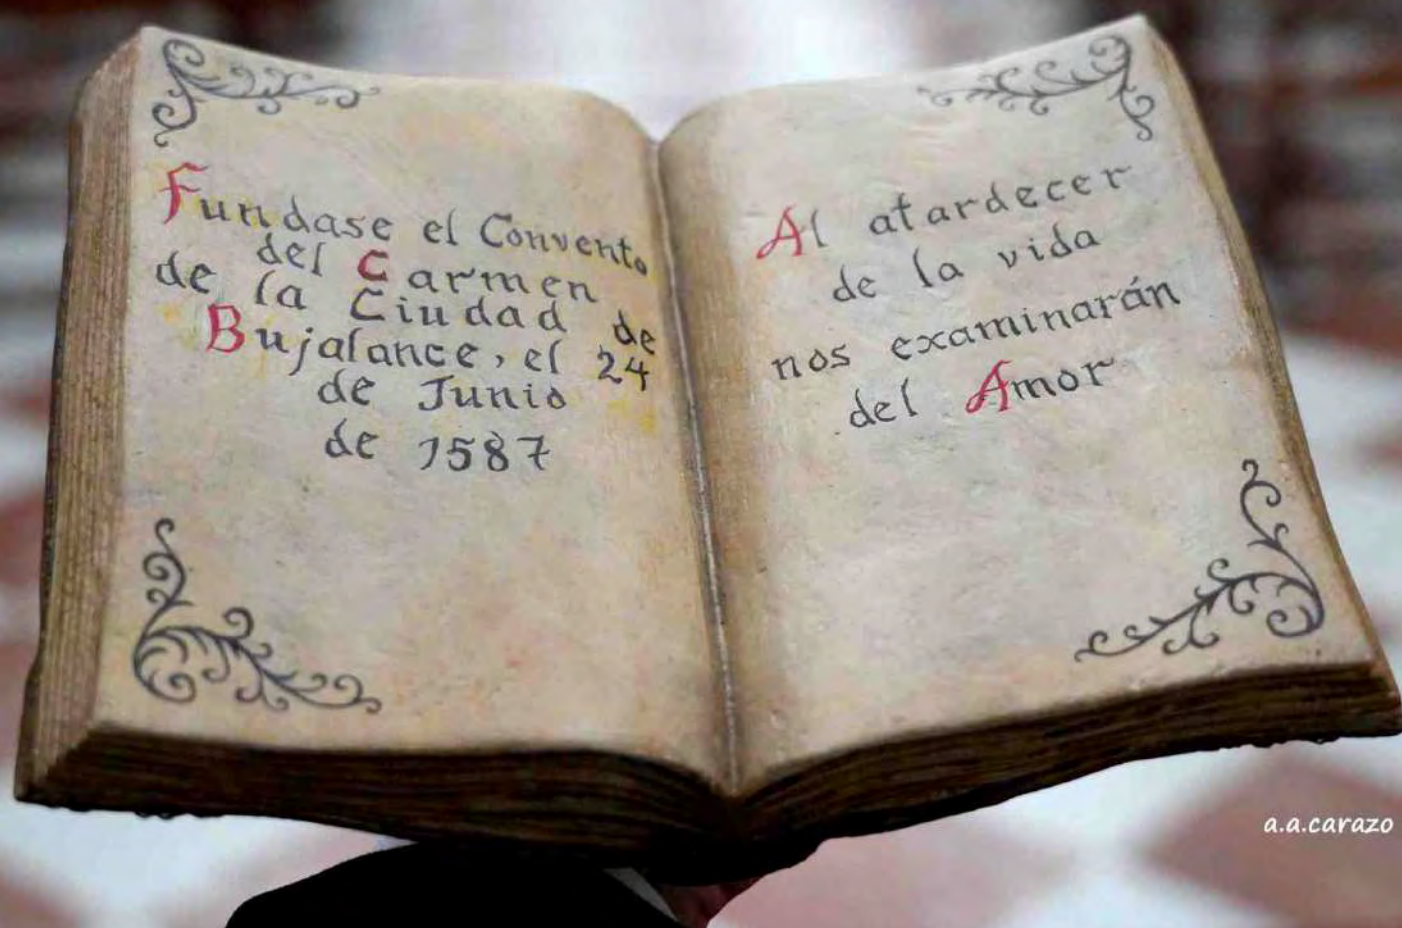 Fundase el Convento
del Carmen
de la Ciudad de
Bujalance, el 24
de Junio
de 1587
Al atardecer
de la vida
nos examinarán
del Amor
a.a.carazo